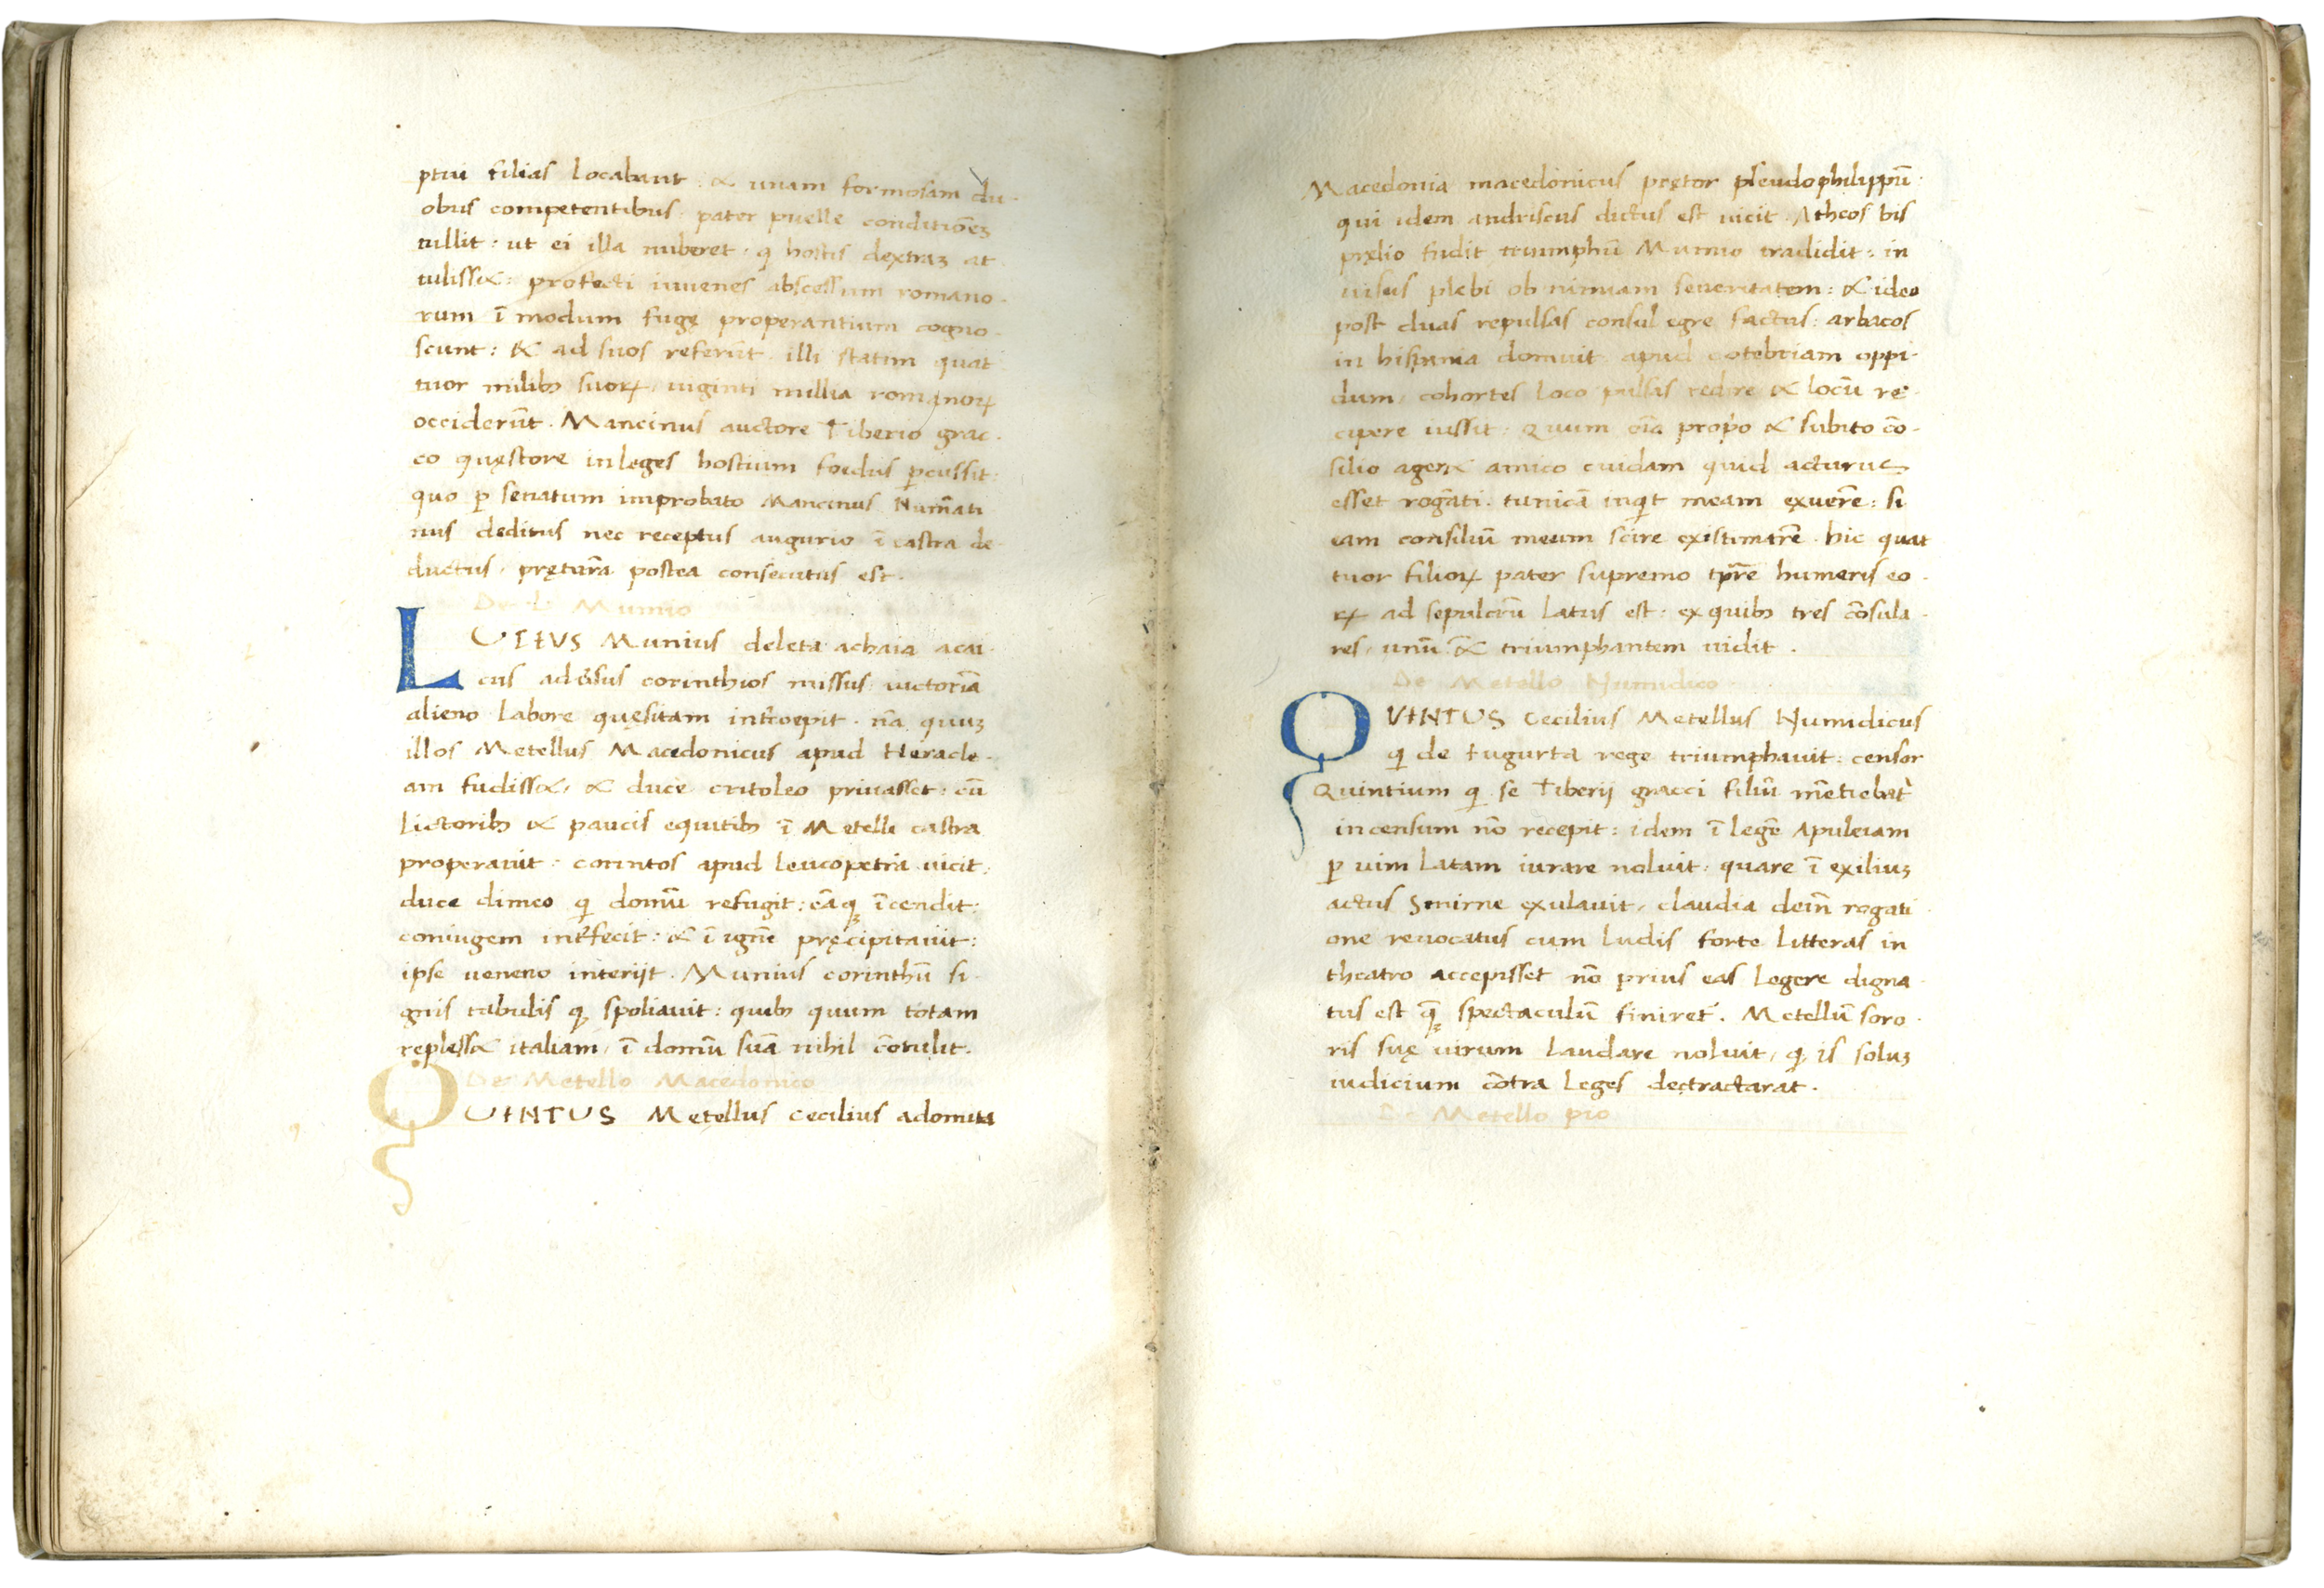 ptui filias locabant: & unam formosam du-
obus competentibus pater puelle conditionẽ
tullit: ut ei illa nuberet qͥ hostis dextraꝫ at
tulissꝫ: profecti iuvenes abscessum romano-
rum ĩ modum fugę properantium cogno-
scunt: & ad suos referũt illi statim quat
tuor milibꝫ suoꝝ, viginti millia romanoꝝ
occiderũt. Mancinus auctore Tiberio grac-
co quęstore in leges hostium foedus ꝑcussit:
quo ꝑ senatum improbato Mancinus Numãti
nus deditus nec receptus augurio ĩ castra de-
ductus, pręturã postea consecutus est.
De L. Mumio
LUTIUS Munius deleta achaia acai-
cus adũsus corinthios missus victoriã
alieno labore quęsitam intͬcoepit. nã quuꝫ
illos Metellus Macedonicus apud Heracle-
am fudiss&, & duce critoleo privasset: cũ
lictoribꝫ & paucis equitibꝫ ĩ Metelli castra
properavit: corintos apud leucopetra vicit:
duce dimeo qͥ domũ refugit: eãqꝫ ĩcendit:
coniugem intͬfecit: & ĩ ignẽ pręcipitavit:
ipse veneno interijt. Munius corinthũ si-
gnis tabulis qꝫ spoliavit: quibꝫ quum totam
repless& italiam, ĩ domũ suã nihil cõtulit.
De Metello Macedonico
QUINTUS Metellus Cecilius a domita
Macedonia macedonicus pretor pseudophilippũ:
qui idem andriscus dictus est vicit. Atheos bis
pręlio fudit triumphũ Mumio tradidit: in
visus plebi ob nimiam severitatem: & ideo
post duas repulsas consul egre factus: arbacos
in hispania domuit apud cotebriam oppi-
dum, cohortes loco pulsas redire & locũ re-
cipere iussit: Quum oĩa propͦo & subito cõ-
silio ager& amico cuidam quid acturus
esset rogãti. tunicã inqͥt meam exuerẽ: si
eam consiliũ meum scire existimarẽ. hic quat
tuor filioꝝ pater supremo tp̃re humeris eo-
ꝝ ad sepulcrũ latus est: ex quibꝫ tres cõsula-
res, unũ & triumphantem vidit.
De Metello Numidico
QVINTUS Cecilius Metellus Numidicus
qͥ de Iugurta rege triumphavit: censor
Quintium qͥ se Tiberij gracci filiũ mẽtiebatͬ
in censum nõ recepit: idem ĩ legẽ Apuleiam
ꝑ vim latam iurare noluit: quare ĩ exiliuꝫ
actus Smirne exulavit, claudia deĩn rogati
one revocatus cum ludis forte litteras in
theatro accepisset nõ prius eas legere digna
tus est qͣꝫ spectaculũ finiretͬ. Metellũ soro-
ris suę virum laudare noluit, qͥ is soluꝫ
iudicium cõtra leges dectractarat.
De Metello pio